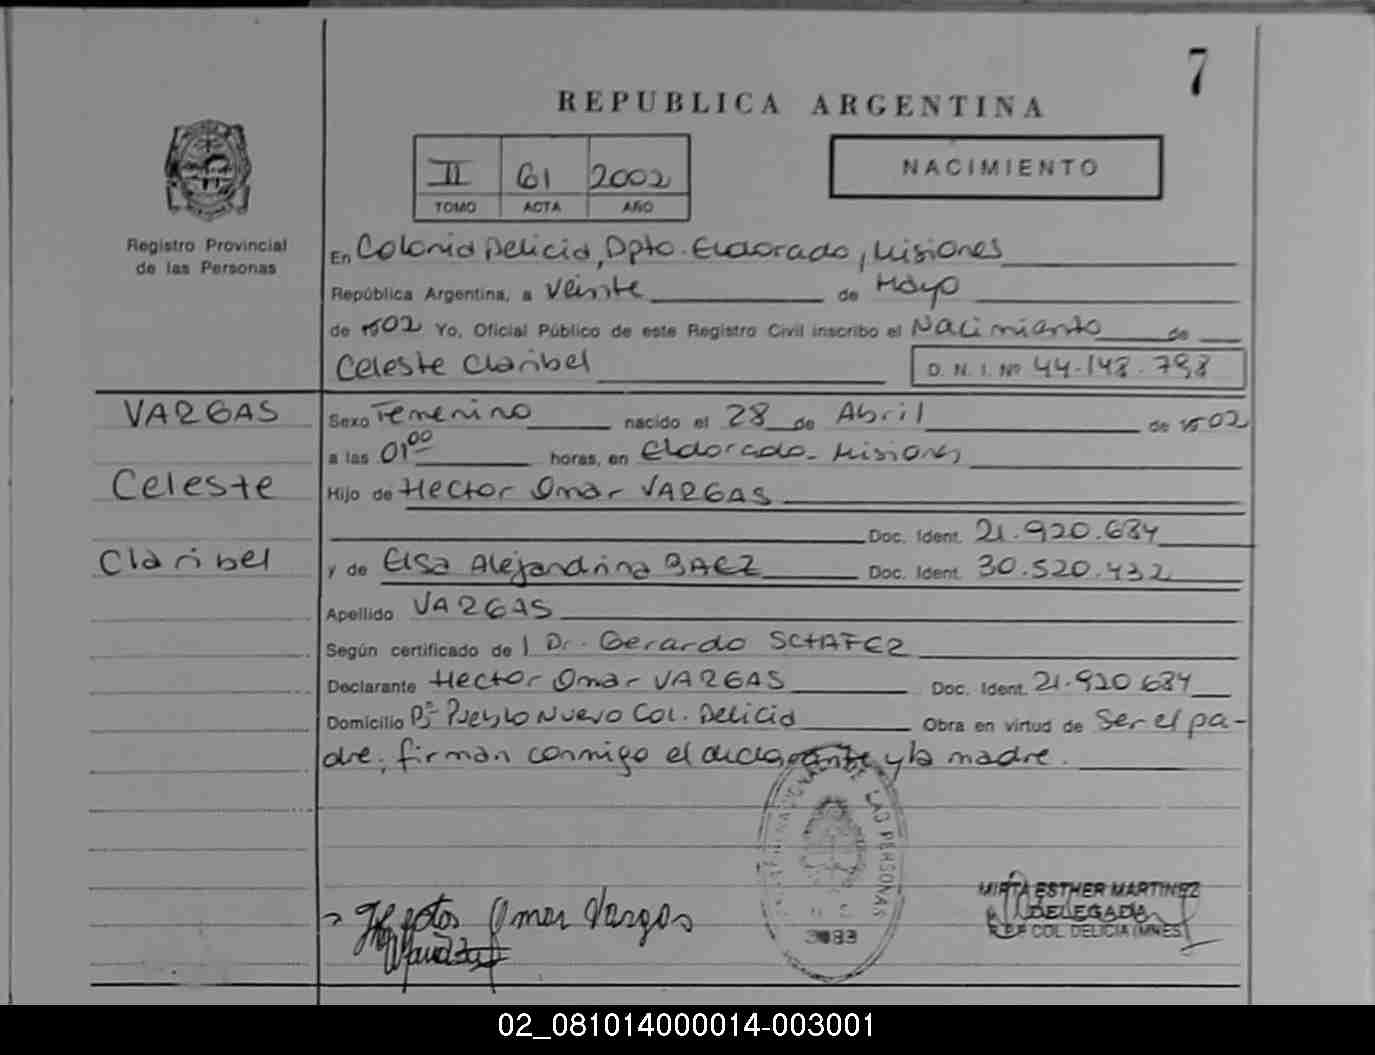 7
REPUBLICA ARGENTINA
II 61 2002
TOMO ACTA AÑO
NACIMIENTO
Registro Provincial
de las Personas
En Colonia Delicia, Dpto. Eldorado, Misiones
República Argentina, a Veinte de Mayo
de 02 Yo, Oficial Público de este Registro Civil inscribo el Nacimiento de
Celeste Claribel D. N. I. Nº 44.148.798
VARGAS
Celeste
Claribel
Sexo Femenino nacido el 28 de Abril de 02
a las 01 00 horas, en Eldorado - Misiones
Hijo de Hector Omar VARGAS
Doc. Ident. 21.920.634
y de Elsa Alejandrina BAEZ Doc. Ident. 30.520.432
Apellido VARGAS
Según certificado de l Dr. Gerardo SCHAFER
Declarante Hector Omar VARGAS Doc. Ident. 21.920 634
Domicilio Bº Pueblo Nuevo Col. Delicia Obra en virtud de Ser el pa-
dre; firman conmigo el declarante y la madre.
NACIONAL DE LAS PERSONAS
Omar Vargas
MIRTA ESTHER MARTINEZ
DELEGADA
COL. DELICIA (MNES)
02_081014000014-003001